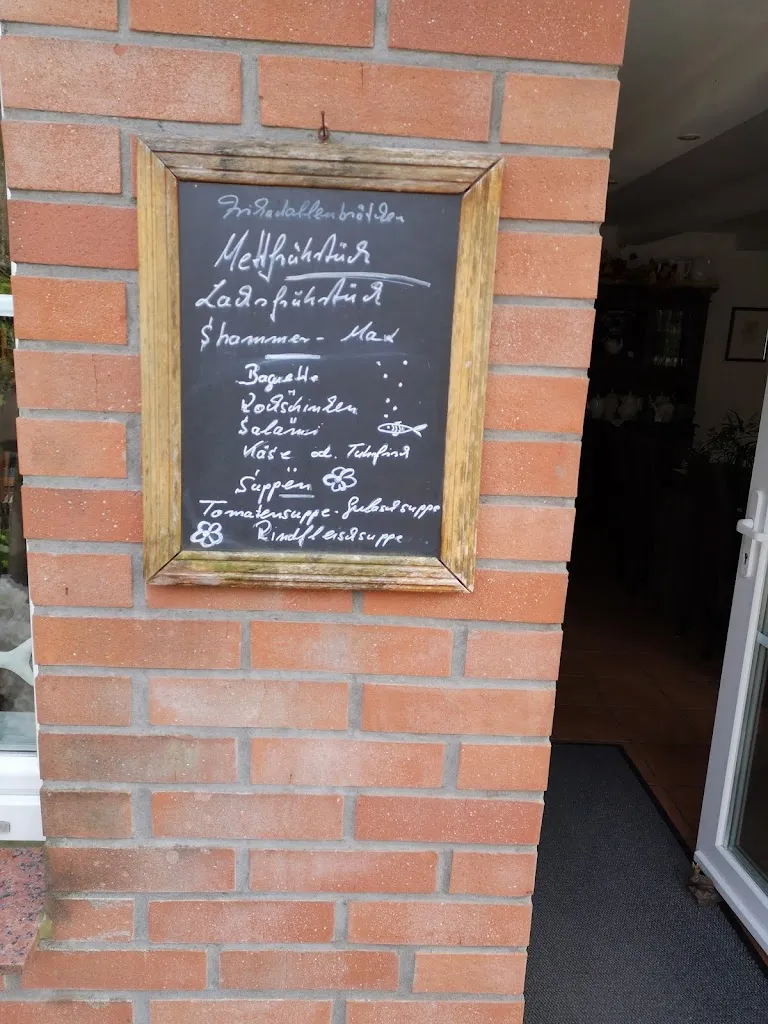 Frikadellenbrötchen
Mettfrühstück
Lachsfrühstück
Shammer - Max
Baguette
Kochschinken
Salami
Käse od. Tunfisch
Suppen
Tomatensuppe - Gulaschsuppe
Rindfleischsuppe